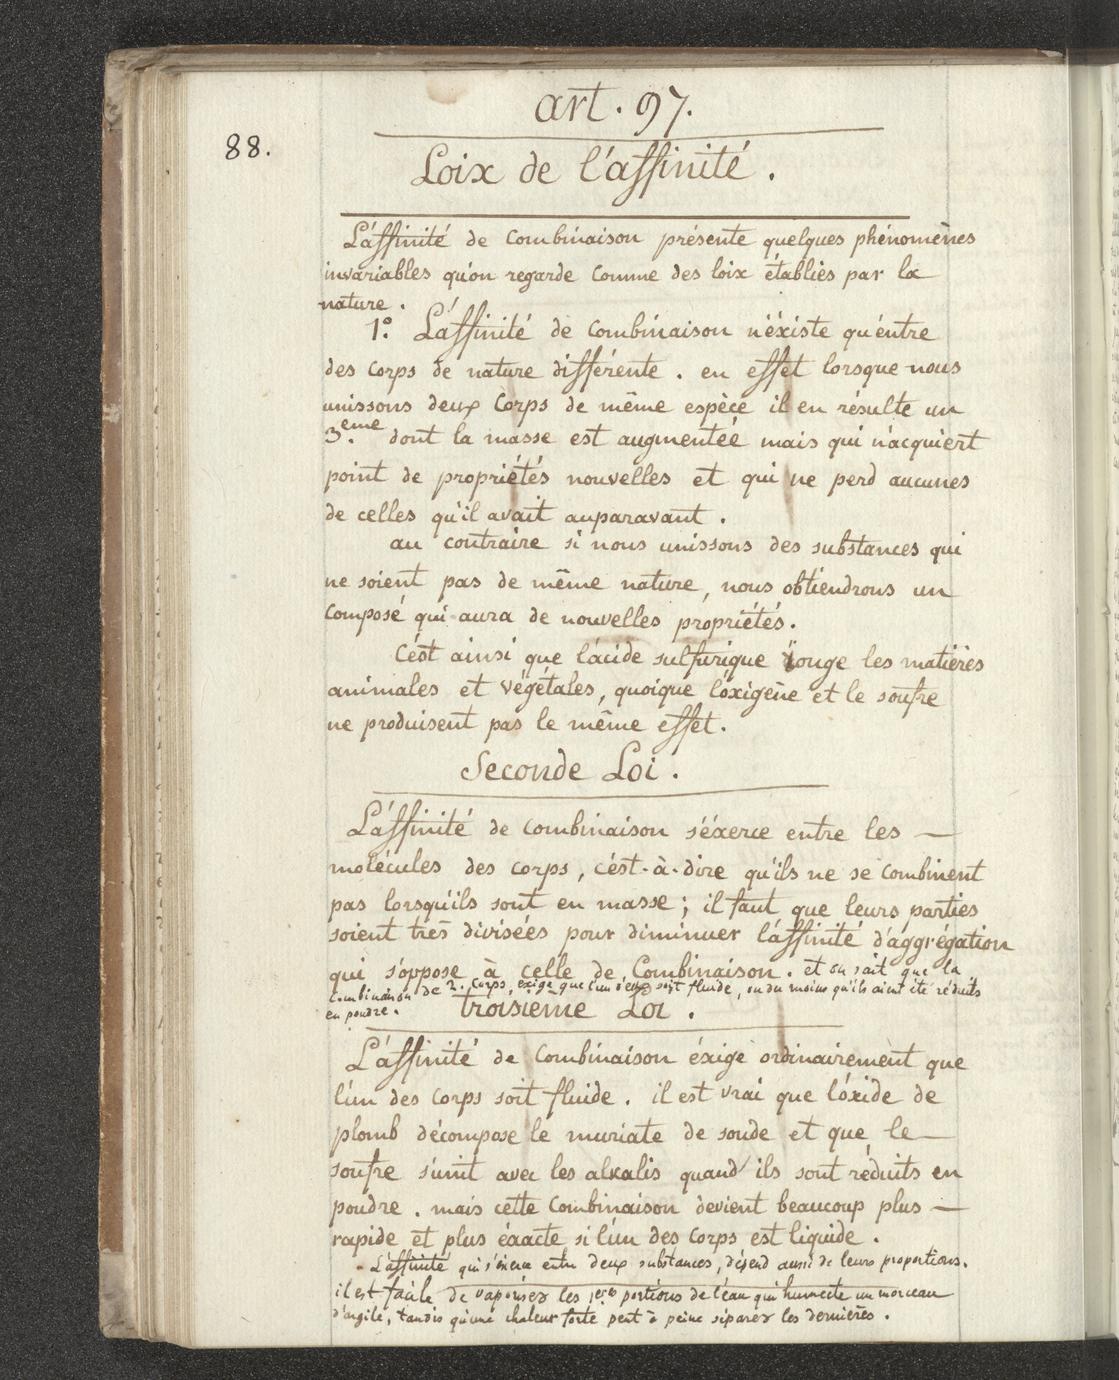 art. 97.
88.
Loix de l'affinité.
L'affinité de combinaison présente quelques phénomènes
invariables qu'on regarde comme des loix établies par la
nature.
1.° L'affinité de combinaison n'éxiste qu'entre
des corps de nature différente. en effet lorsque nous
unissons deux corps de même espèce il en résulte un
3.eme dont la masse est augmentée mais qui n'acquiert
point de propriétés nouvelles et qui ne perd aucunes
de celles qu'il avait auparavant.
au contraire si nous unissons des substances qui
ne soient pas de même nature, nous obtiendrons un
composé qui aura de nouvelles propriétés.
C'est ainsi que l'acide sulfurique rouge les matières
animales et végétales, quoique l'oxigène et le soufre
ne produisent pas le même effet.
Seconde Loi.
L'affinité de combinaison s'éxerce entre les —
molécules des corps, c'est-à-dire qu'ils ne se combinent
pas lorsqu'ils sont en masse; il faut que leurs parties
soient très divisées pour diminuer l'affinité d'aggrégation
qui s'oppose à celle de Combinaison. et on sait que la
combinaison de 2. corps, exige que l'un d'eux soit fluide, ou du moins qu'ils aient été réduits
en poudre.
troisième Loi.
L'affinité de combinaison éxige ordinairement que
l'un des corps soit fluide. il est vrai que l'oxide de
plomb décompose le muriate de soude et que le —
soufre s'unit avec les alkalis quand ils sont réduits en
poudre. mais cette combinaison devient beaucoup plus —
rapide et plus éxacte si l'un des corps est liquide.
- L'affinité qui s'éxerce entre deux substances, dépend aussi de leurs proportions.
il est facile de vaporiser les 1eres portions de l'eau qui humecte un morceau
d'argile, tandis qu'une chaleur forte peut à peine séparer les dernières.